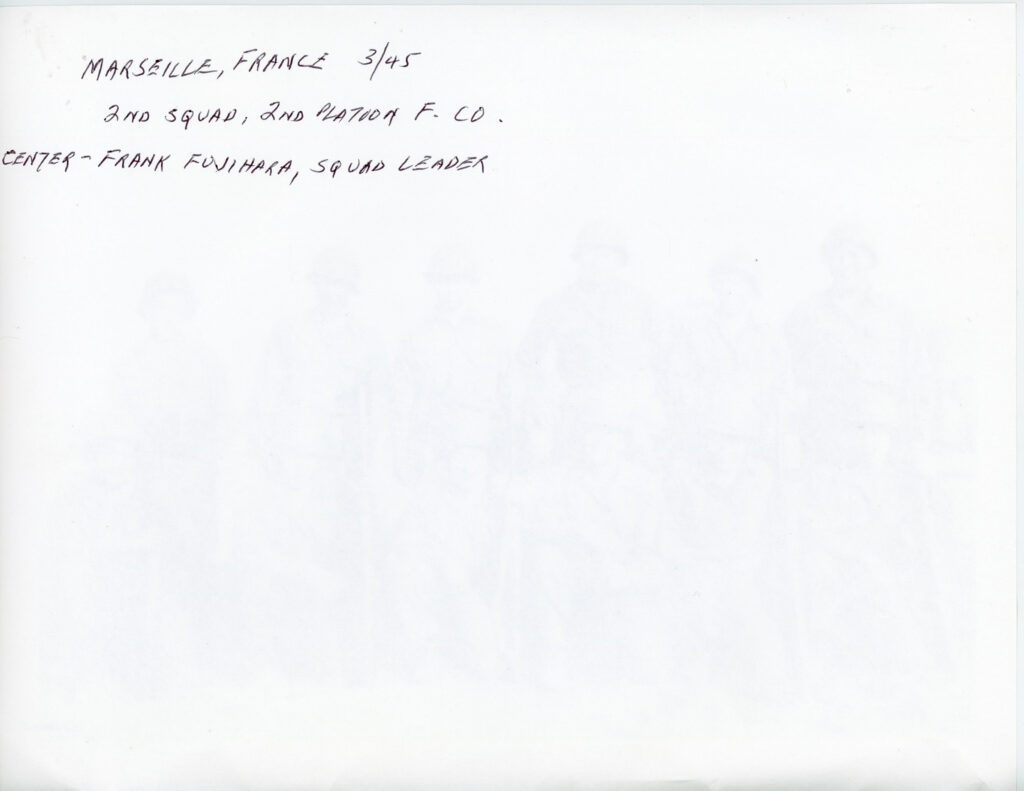 MARSEILLE, FRANCE 3/45
2ND SQUAD, 2ND PLATOON F. CO.
CENTER - FRANK FUJIHARA, SQUAD LEADER